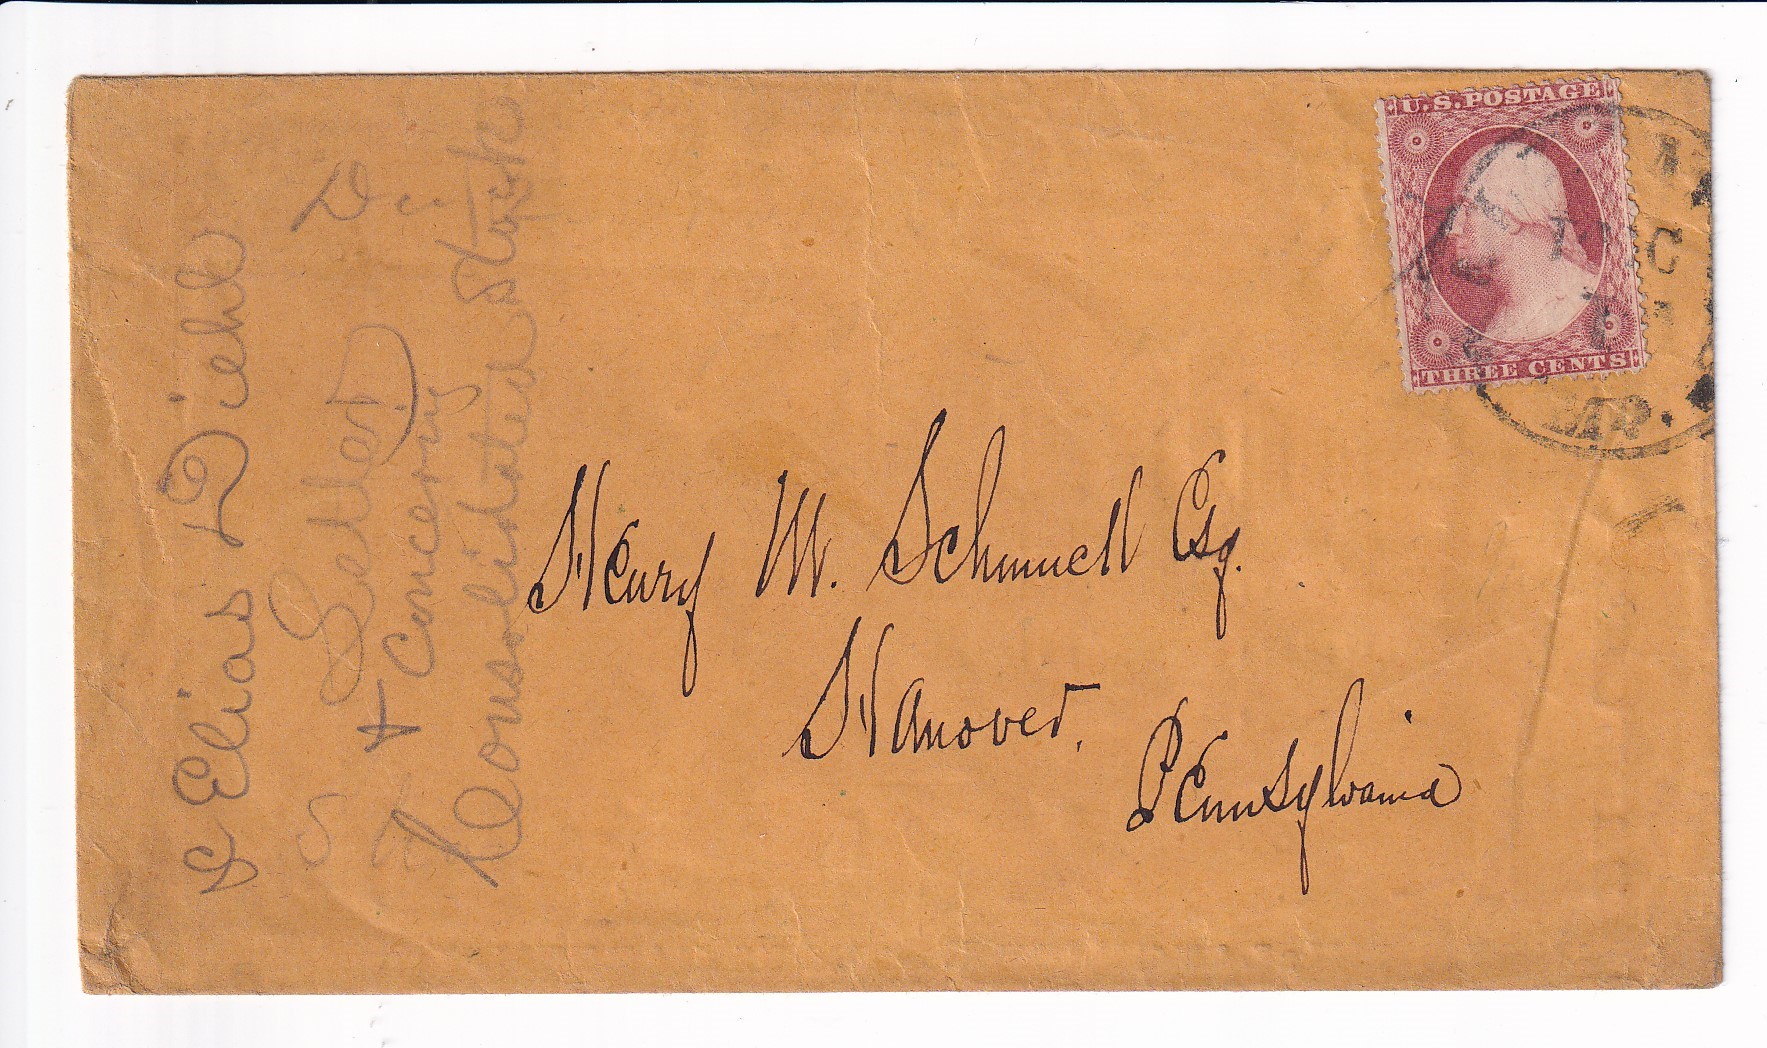 U.S. POSTAGE
THREE CENTS
DEC
MD.
Henry M. Schmuck Esq.
Hanover,
Pennsylvania
Elias Diehl
Letter
+ Concerning
Consolidated Stock